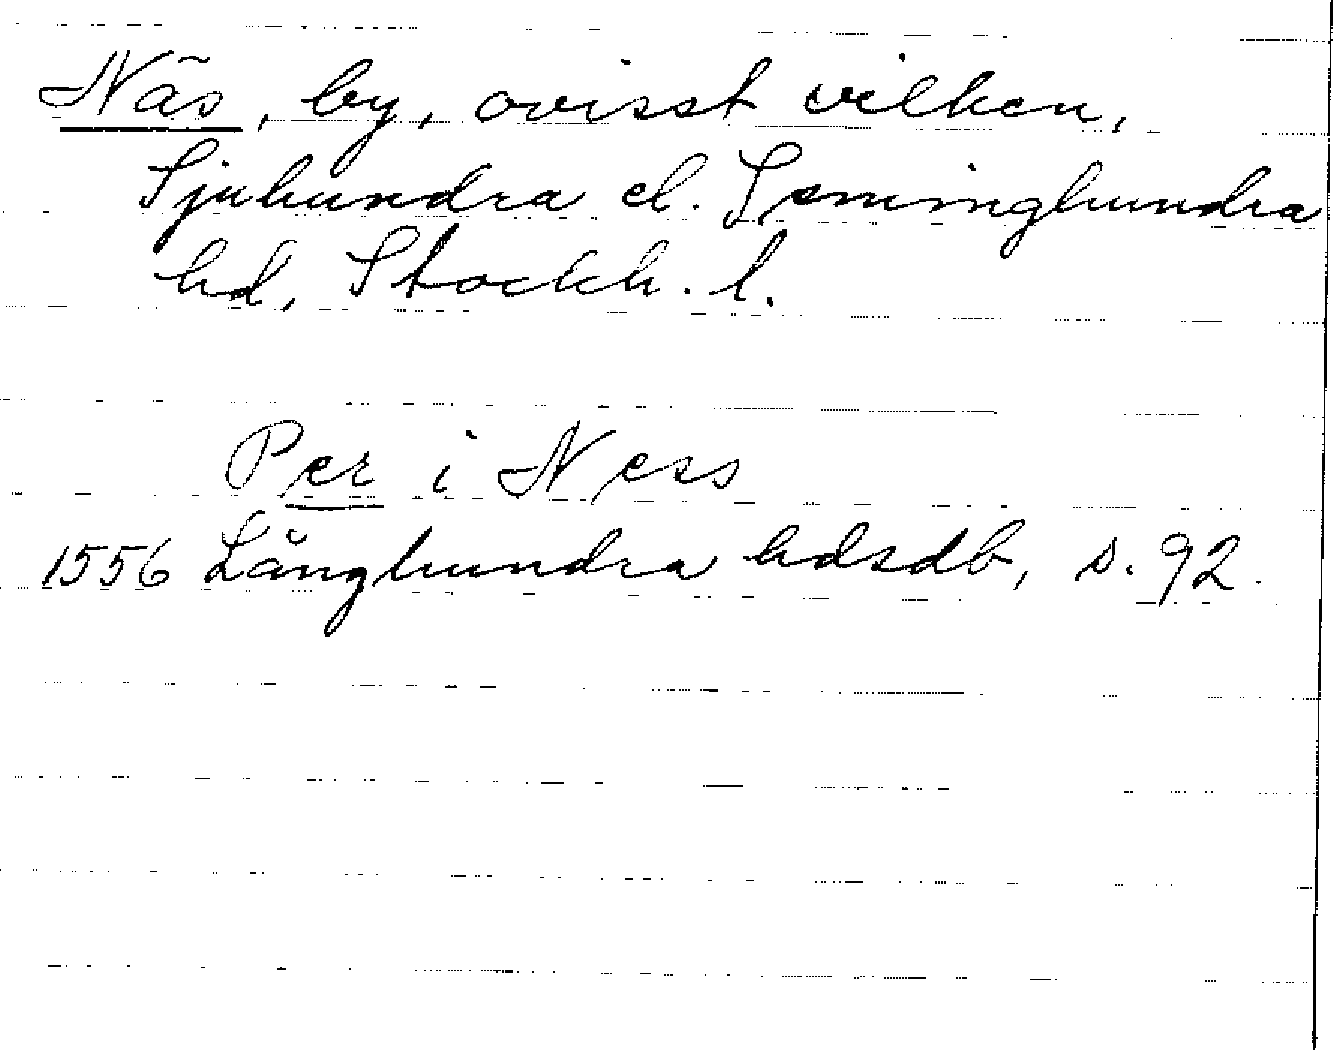 Näs, by, ovisst vilken,
Sjuhundra el. Seminghundra
hd, Stockh. l.
Per i Ness
1556 Långhundra hdsdb, s. 92.